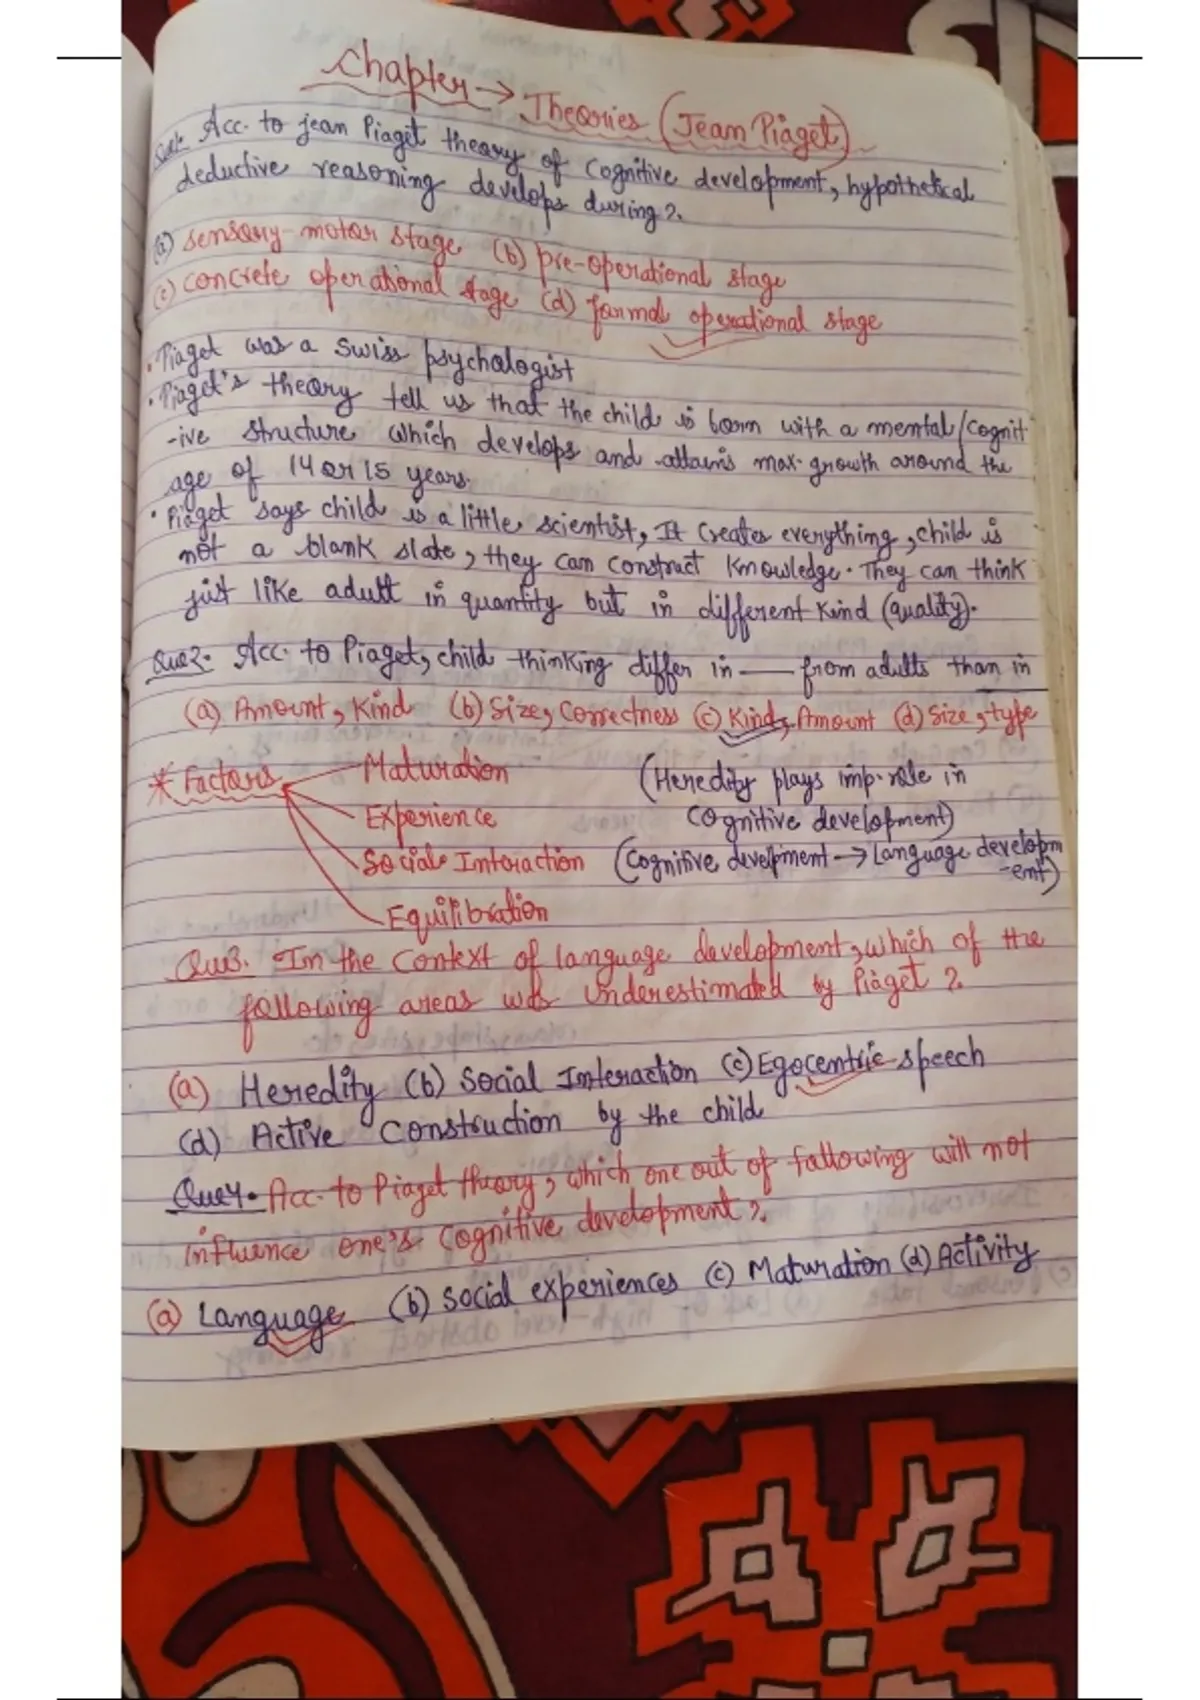 Chapter → Theories (Jean Piaget)
Que1:- Acc. to jean Piaget theory of Cognitive development, hypothetical
deductive reasoning develops during?
(a) sensory-motor stage (b) pre-operational stage
(c) concrete operational stage (d) formal operational stage
• Piaget was a Swiss psychologist
• Piaget's theory tell us that the child is born with a mental/Cognit
-ive structure which develops and attains max. growth around the
age of 14 or 15 years.
• Piaget says child is a little scientist, It creates everything, child is
not a blank slate, they can construct knowledge. They can think
just like adult in quantity but in different kind (quality).
Que2:- Acc. to Piaget, child thinking differ in — from adults than in —
(a) Amount, Kind (b) Size, Correctness (c) Kind, Amount (d) Size, type
* Factors Maturation (Heredity plays imp. role in
Experience Cognitive development)
Social Interaction (Cognitive develpment → Language developm
-ent)
Equilibration
Que3. In the Context of language development, which of the
following areas was underestimated by Piaget?
(a) Heredity (b) Social Interaction (c) Egocentric speech
(d) Active Construction by the child
Que4. Acc. to Piaget theory, which one out of following will not
influence one's Cognitive development?
(a) Language (b) Social experiences (c) Maturation (d) Activity